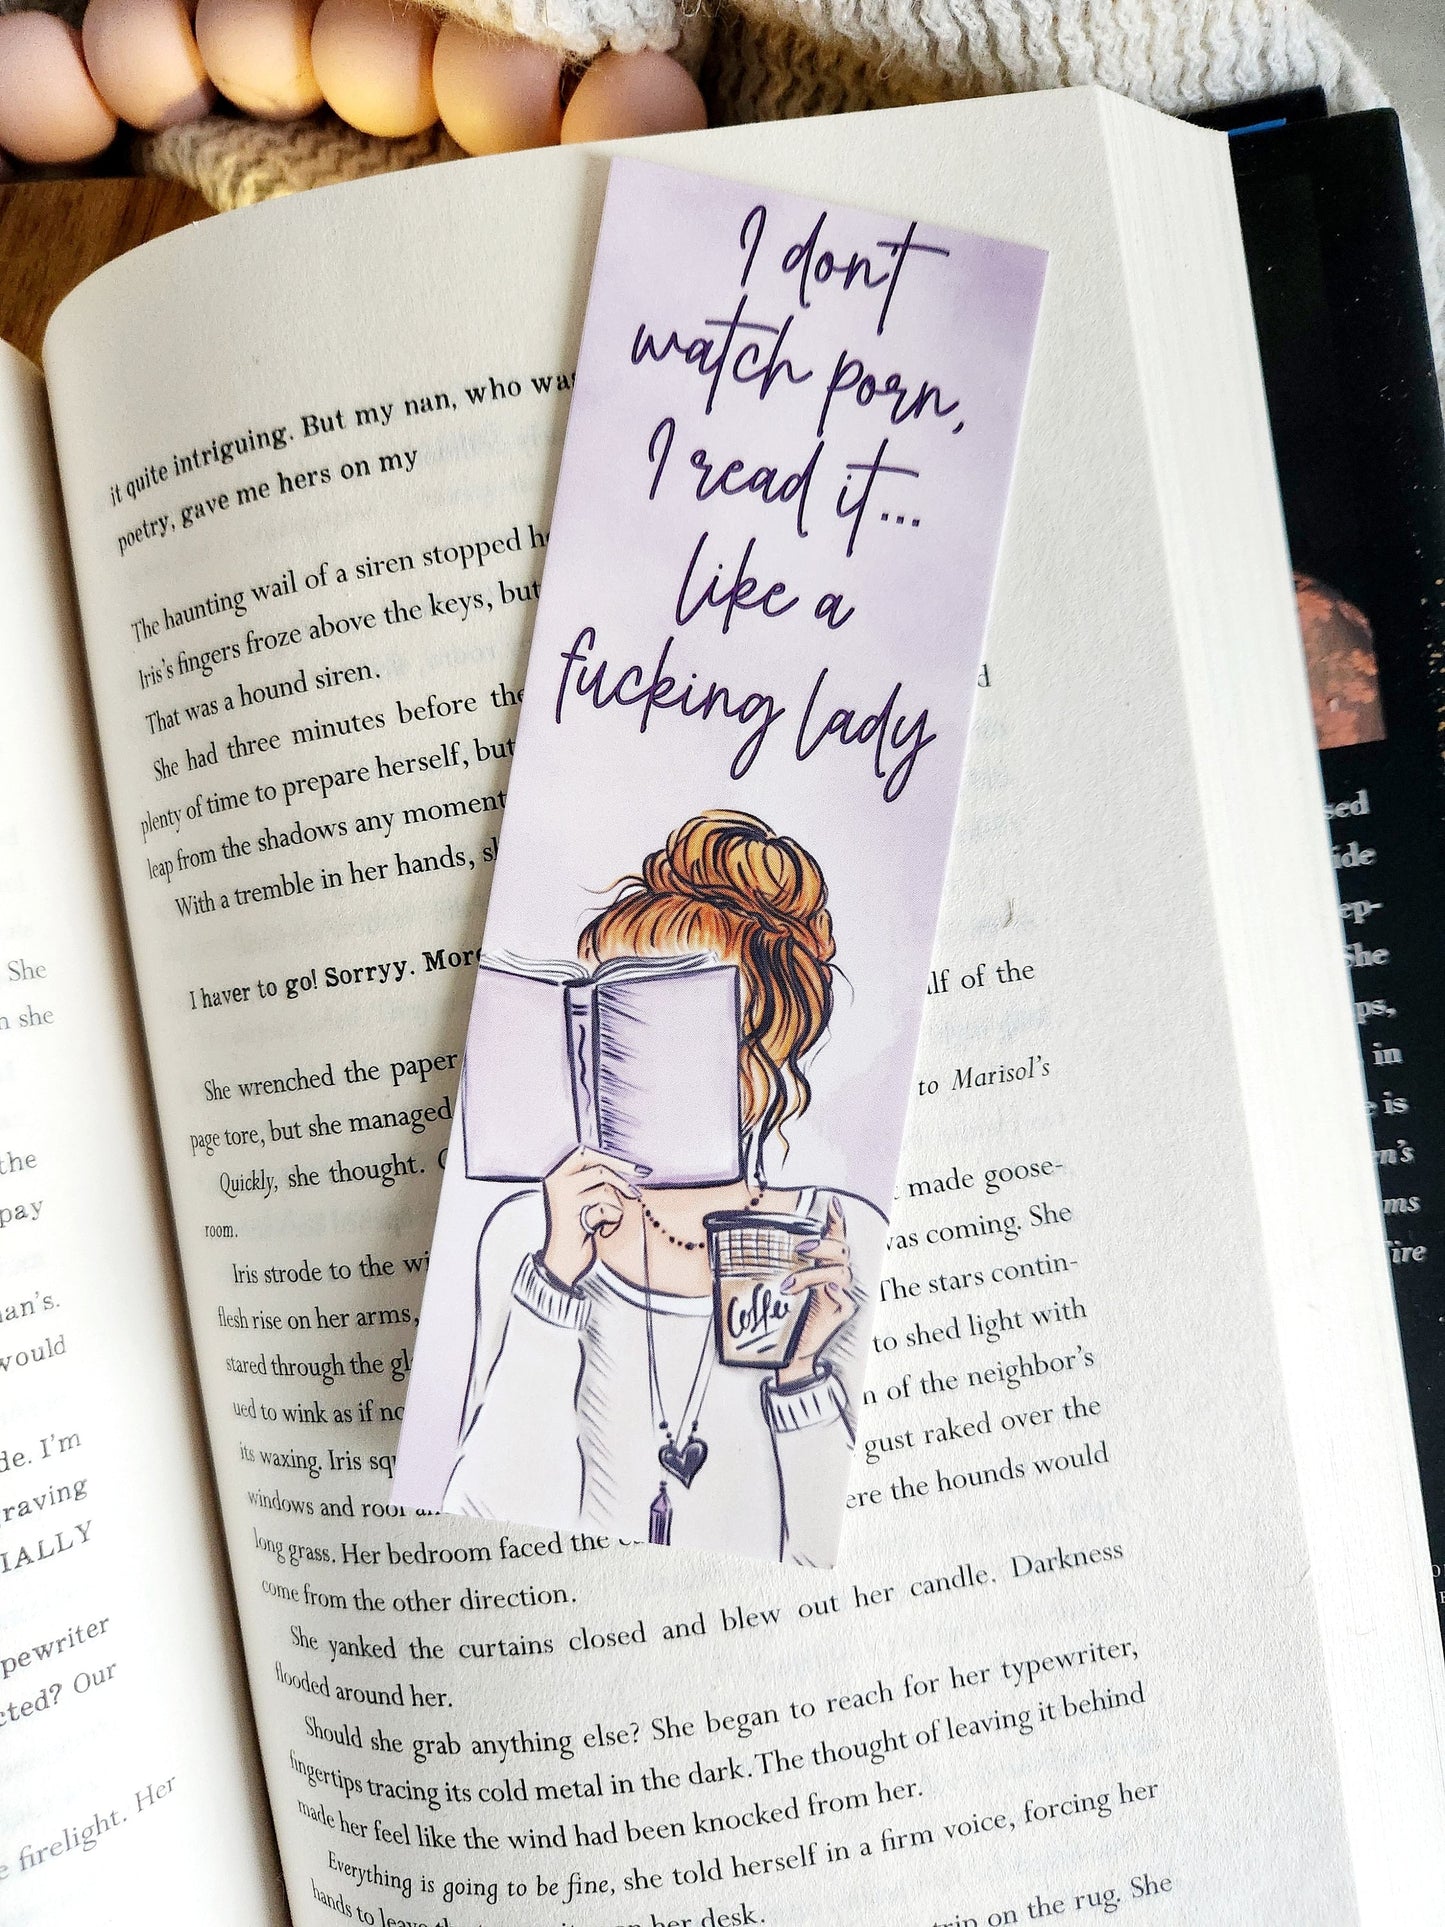 I don't
watch porn,
I read it...
like a
fucking lady
Coffee
it quite intriguing. But my nan, who was
poetry, gave me hers on my
The haunting wail of a siren stopped
Iris's fingers froze above the keys, but
That was a hound siren.
She had three minutes before the
plenty of time to prepare herself, but
leap from the shadows any moment
With a tremble in her hands,
I haver to go! Sorryy. More
of the
She wrenched the paper
to Marisol's
page tore, but she managed
Quickly, she thought.
made goose-
room.
was coming. She
Iris strode to the
The stars contin-
flesh rise on her arms,
to shed light with
stared through the
of the neighbor's
ued to wink as if
gust raked over the
its waxing. Iris
the hounds would
windows and roof
long grass. Her bedroom faced the
come from the other direction.
She yanked the curtains closed and blew out her candle. Darkness
flooded around her.
Should she grab anything else? She began to reach for her typewriter,
fingertips tracing its cold metal in the dark. The thought of leaving it behind
made her feel like the wind had been knocked from her.
Everything is going to be fine, she told herself in a firm voice, forcing her
hands to leave
her desk.
on the rug. She
She
she
the
pay
would
I'm
Our
firelight. Her
She
in
is